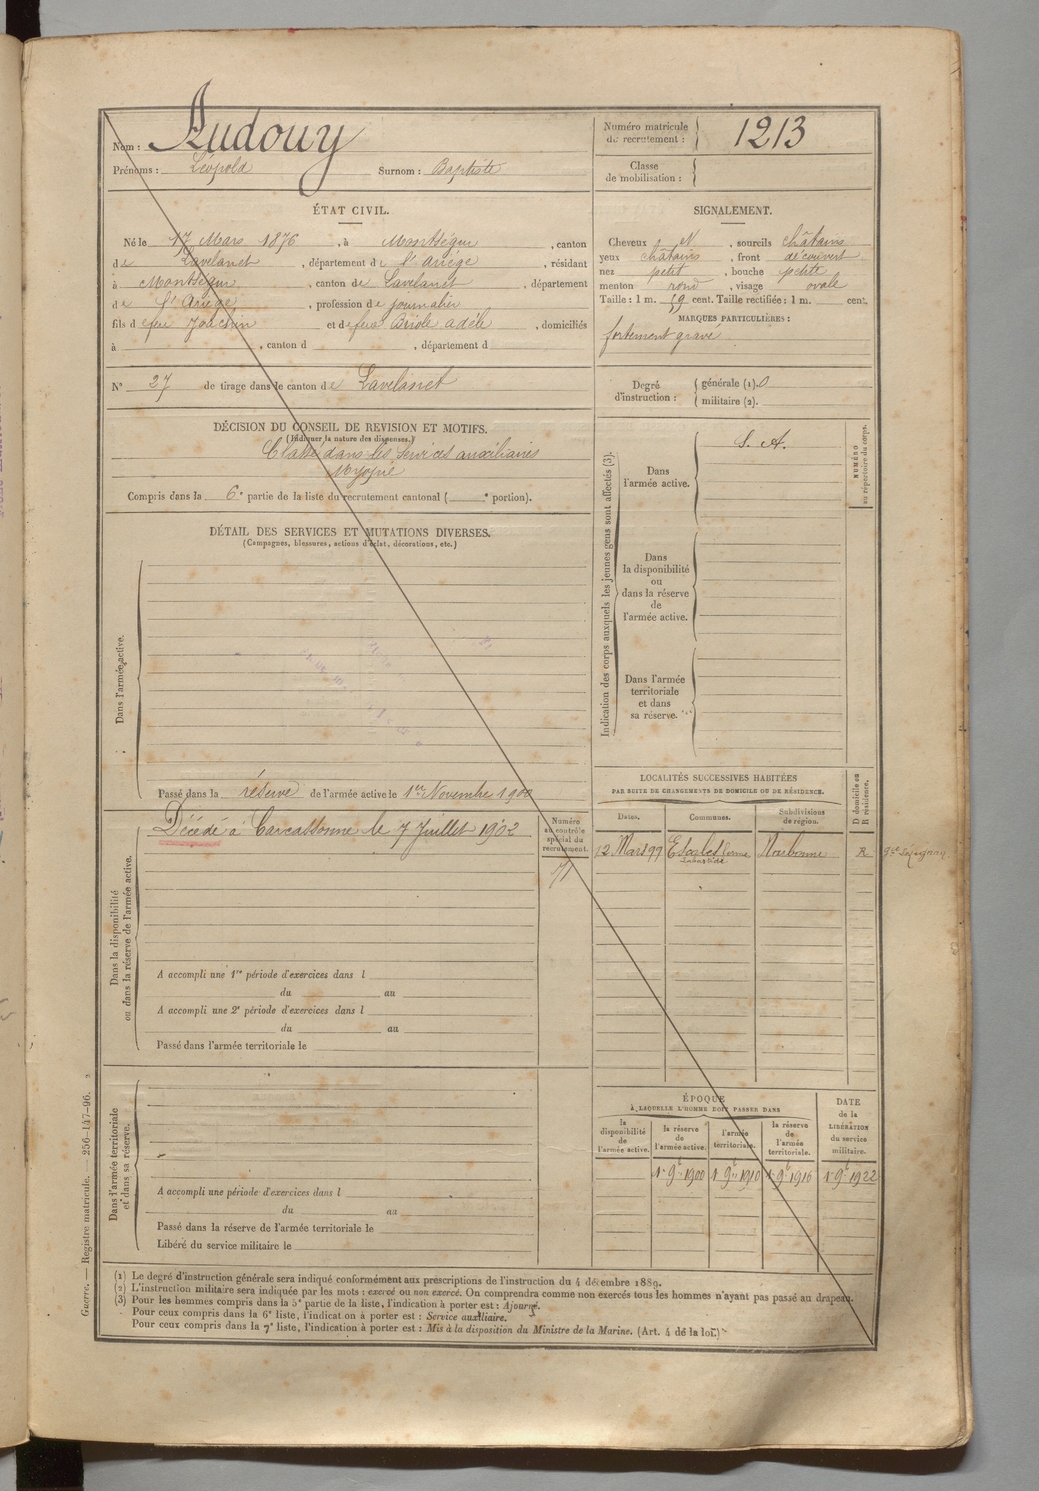 Nom : Audouy
Prénoms : Léopold Surnom : Baptiste
Numéro matricule de recrutement : 1213
Classe de mobilisation :
ÉTAT CIVIL.
Né le 17 Mars 1876, à Montségur, canton
de Lavelanet, département de l'Ariège, résidant
à Montségur, canton de Lavelanet, département
de l'Ariège, profession de journalier
fils de feu Joachin et de feue Briole Adèle, domiciliés
à , canton d , département d
N° 27 de tirage dans le canton de Lavelanet
SIGNALEMENT.
Cheveux et, sourcils châtains
yeux châtains, front découvert
nez petit, bouche petite
menton rond, visage ovale
Taille : 1 m. 59 cent. Taille rectifiée : 1 m. cent.
MARQUES PARTICULIÈRES :
fortement gravé
Degré d'instruction : générale (1). 0
militaire (2).
DÉCISION DU CONSEIL DE REVISION ET MOTIFS.
(Indiquer la nature des dispenses.)
Classé dans les services auxiliaires
Myopie
Compris dans la 6e partie de la liste du recrutement cantonal ( e portion).
DÉTAIL DES SERVICES ET MUTATIONS DIVERSES.
(Campagnes, blessures, actions d'éclat, décorations, etc.)
Dans l'armée active.
Passé dans la réserve de l'armée active le 1er Novembre 1900
Indication des corps auxquels les jeunes gens sont affectés (3).
Dans l'armée active.
S. A.
NUMÉRO au répertoire du corps.
Dans la disponibilité ou dans la réserve de l'armée active.
Dans l'armée territoriale et dans sa réserve.
Dans la disponibilité ou dans la réserve de l'armée active.
Décédé à Carcassonne le 7 Juillet 1902
Numéro au contrôle spécial du recrutement.
A accompli une 1re période d'exercices dans l
du au
A accompli une 2e période d'exercices dans l
du au
Passé dans l'armée territoriale le
LOCALITÉS SUCCESSIVES HABITÉES
PAR SUITE DE CHANGEMENTS DE DOMICILE OU DE RÉSIDENCE.
D domicile ou R résidence.
Dates. Communes. Subdivisions de région.
12 Mars 99 Escales ferme Labastide Narbonne R
Dans l'armée territoriale et dans sa réserve.
A accompli une période d'exercices dans l
du au
Passé dans la réserve de l'armée territoriale le
Libéré du service militaire le
ÉPOQUE
À LAQUELLE L'HOMME DOIT PASSER DANS
la disponibilité de l'armée active.
la réserve de l'armée active.
l'armée territoriale.
la réserve de l'armée territoriale.
DATE de la LIBÉRATION du service militaire.
1er 9b 1900 1er 9b 1910 1er 9b 1916 1er 9b 1922
(1) Le degré d'instruction générale sera indiqué conformément aux prescriptions de l'instruction du 4 décembre 1889.
(2) L'instruction militaire sera indiquée par les mots : exercé ou non exercé. On comprendra comme non exercés tous les hommes n'ayant pas passé au drapeau.
(3) Pour les hommes compris dans la 5e partie de la liste, l'indication à porter est : Ajourné.
Pour ceux compris dans la 6e liste, l'indication à porter est : Service auxiliaire.
Pour ceux compris dans la 7e liste, l'indication à porter est : Mis à la disposition du Ministre de la Marine. (Art. 4 de la loi.)
Guerre. — Registre matricule. — 256-147-96.